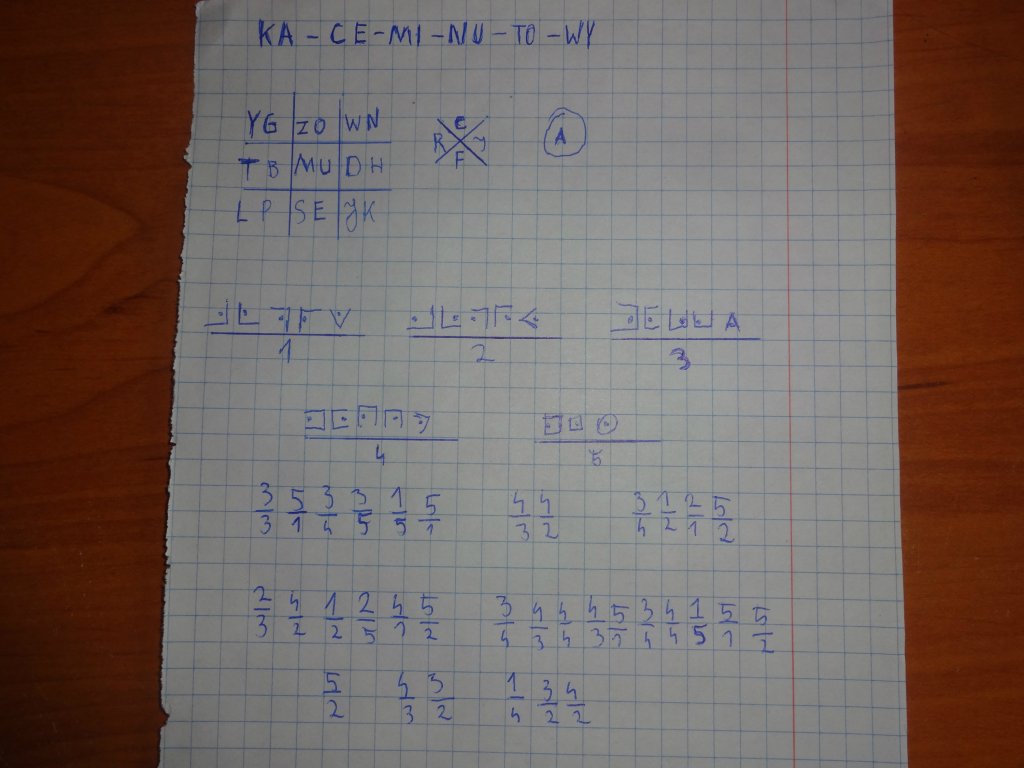 KA - CE - MI - NU - TO - WY
YG ZO WN
C
R J
F
A
TB MU DH
LP SE JK
1 2 3
A
4 5
3/3 5/1 3/4 3/5 1/5 5/1 4/3 4/2 3/4 1/2 2/1 5/2
2/3 4/2 1/2 2/5 4/1 5/2 3/4 4/3 4/4 4/3 5/1 3/4 4/4 1/5 5/1 5/2
5/2 4/3 3/2 1/4 3/2 4/2